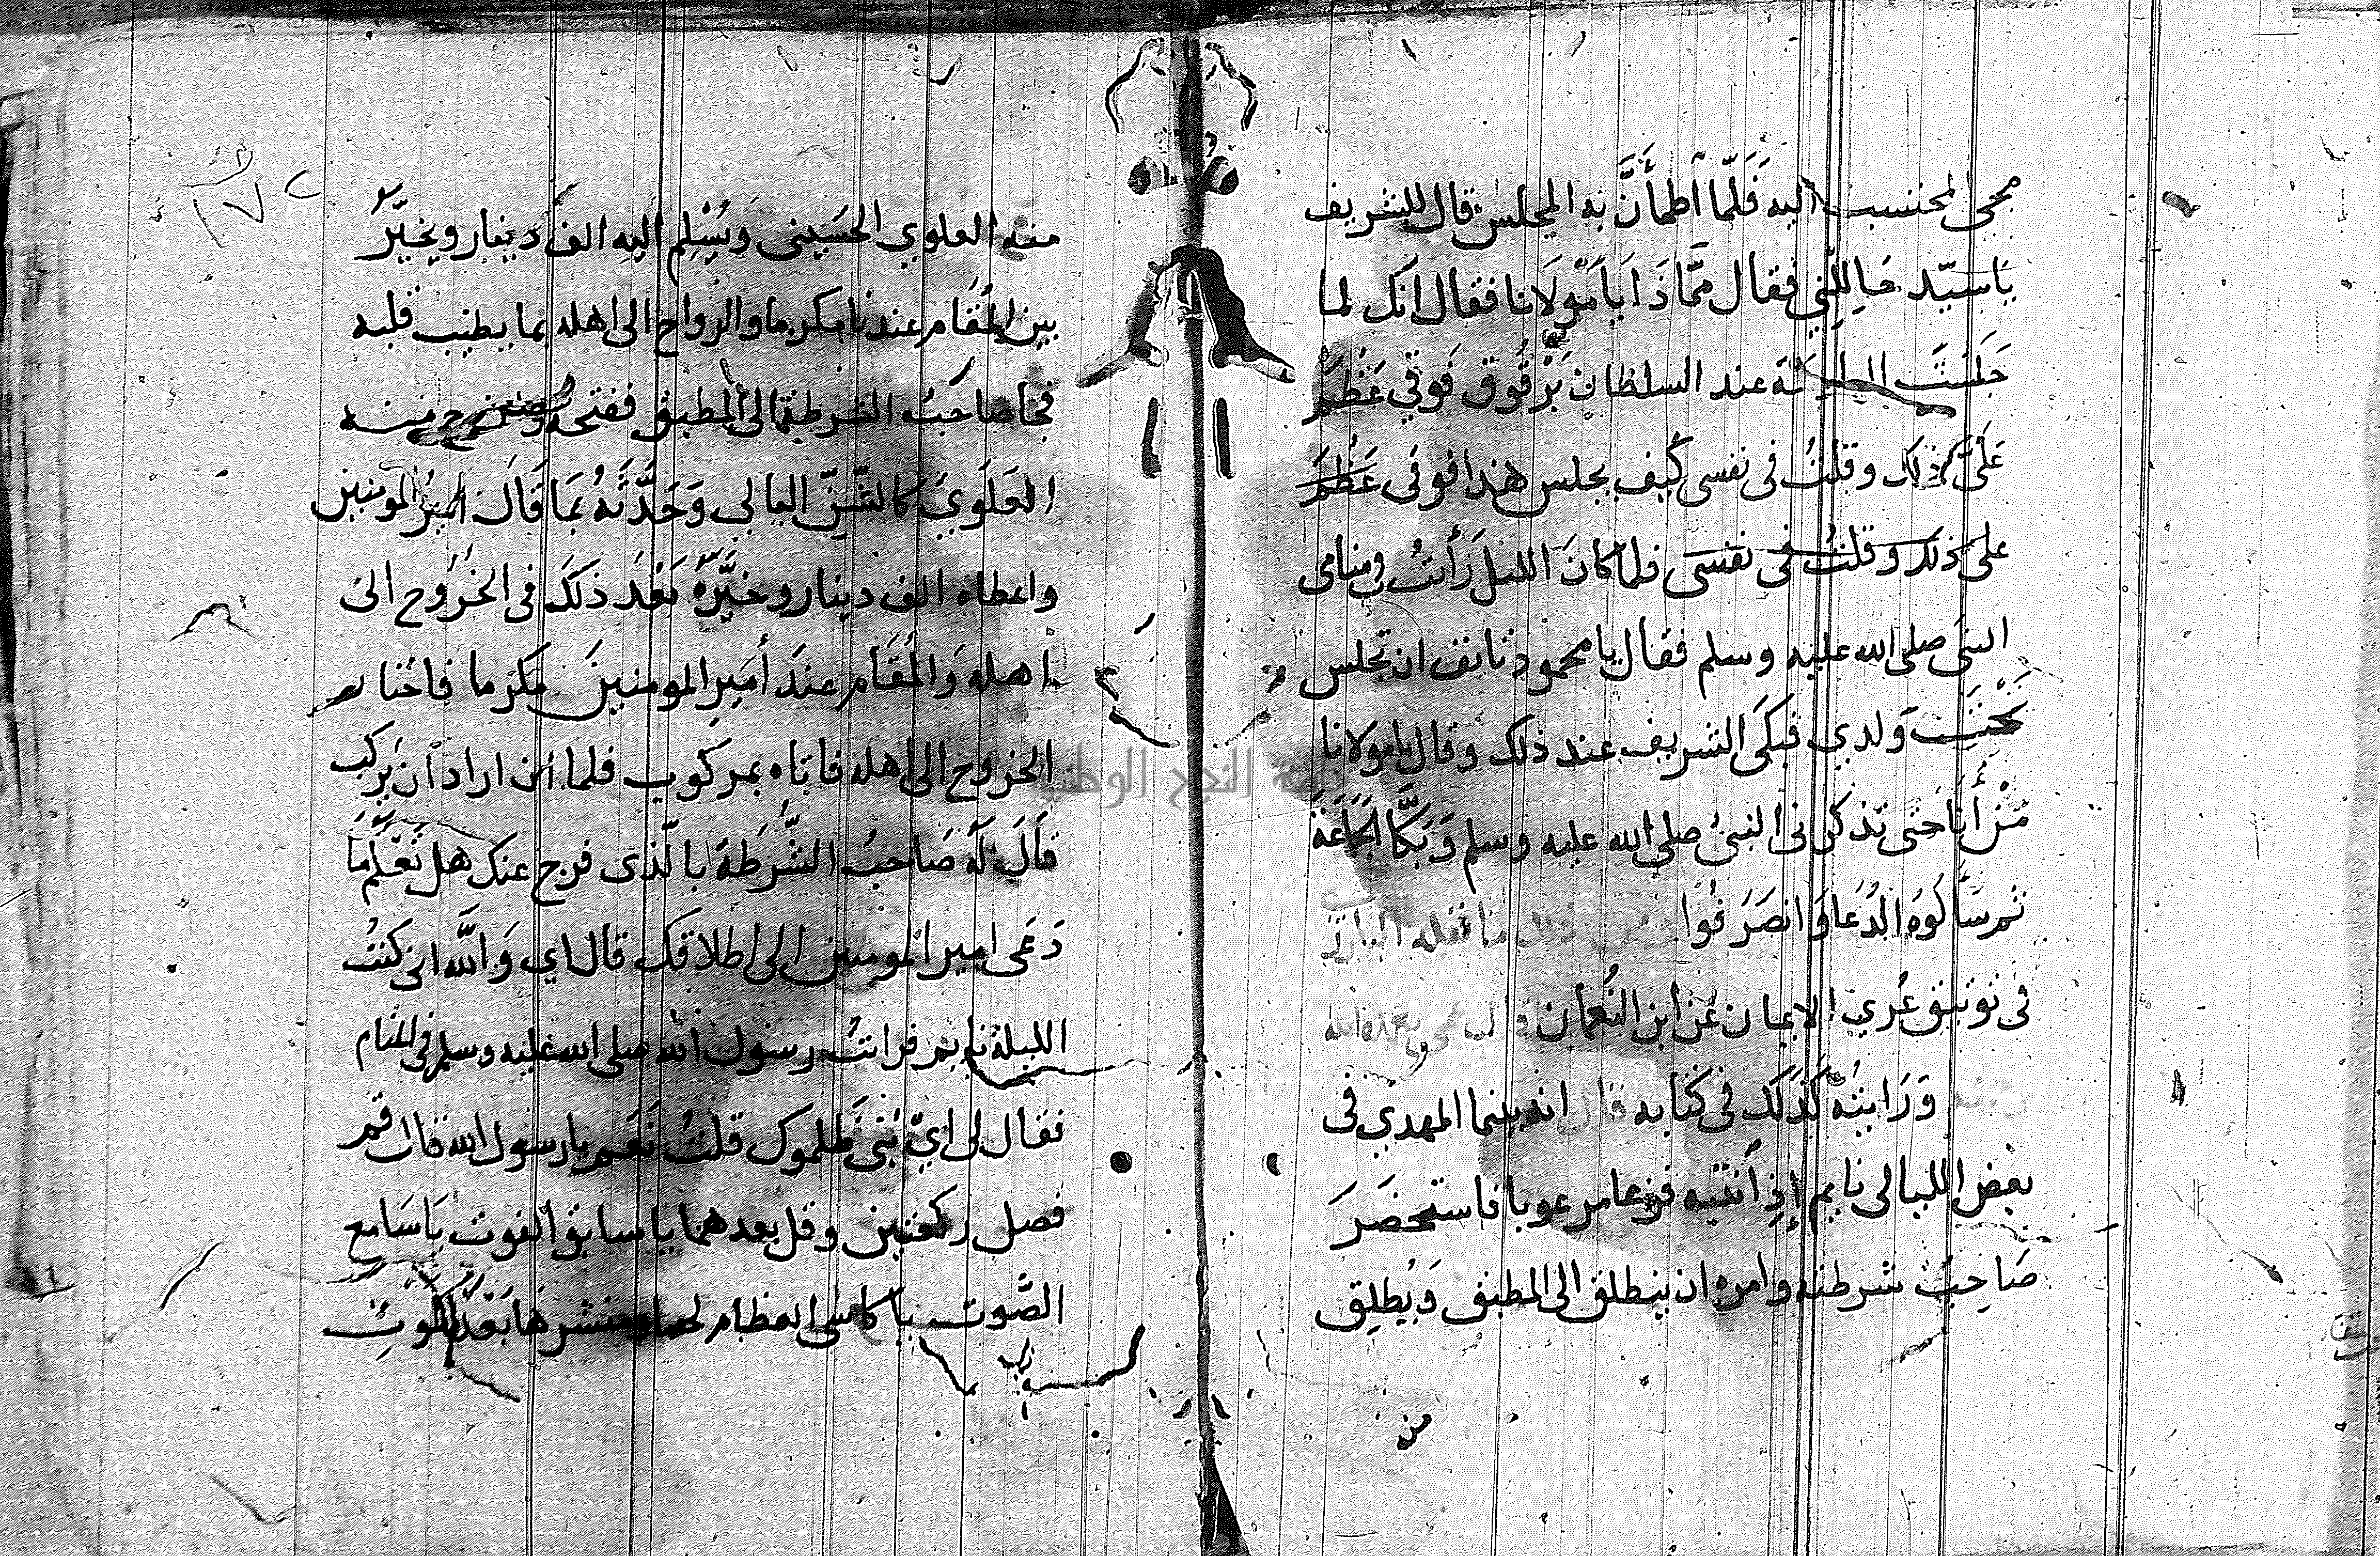 مجى المحتسب اليه فَلَمّا اطمأَنَّ به المجلس قال للشريف
يَا سيّد حَالِلْنِي فقال ممَّاذَا يَا مَوْلَانا فقال انك لما
جَلَسْتَ البارحة عند السلطان بَرْقُوق فَوقي عَظُمَ
عَلَيَّ ذلك وقلتُ فى نفسى كيف يجلس هذا فوقى عَظُمَ
على ذلك وقلتُ فى نفسى فلما كانَ الليل رَأَيتُ فى منامى
النبى صلى الله عليه وسلم فقال يا محمود تانف ان تجلس
تَحْتَ ولدي فبكَى الشريف عند ذلك وقال يا مولانا
مَنْ أَنَا حَتى يذكرنى النبىُ صلى الله عليه وسلم وَبَكَا الجَمَاعَة
ثم سَأَلُوهُ الدُعَا وَانصَرَفُوا قال ما نقله البارزى
فى توثيق عُري الايمان عَن ابن النُعمان
وَرَايتُه كَذلَك فى كتابه قال انه بينما المهدي فى
بعض الليالى نايم إِذِ أنتبه فزعا مرعوبا فاستحضَرَ
صَاحِبَ شرطته وامره ان ينطلق الى المطبق وَيُطلِق
من
١٧٢
منه العلوي الحسَينى وَيُسْلِم اليه الف دينار ويخيَّرُ
بين المُقَام عندنا مكرما والرواح الى اهله بما يطيب قلبه
فجا صاحَبُ الشرطة الى المطبق ففتحه وخرج منه
العَلَوِيَّ كالشَّنِّ البالي وَحَدَّثَهُ بمَا قَالَ اميرُ المومنين
واعطاه الف دينار وخيَّرَهُ بَعْدَ ذلَكَ فى الخرُوُج الىَ
اهله وَالمُقَام عندَ أمَيرِ المومنينَ مكَرما فاختار
الخروج الى اهله فاتاه بمركوب فلما ان اراد أن يَركب
قَالَ لَه صَاحبُ الشُّرطَة بالّذى فرج عنك هل تَعْلَم مَا
دَعَى امير المومنين الى اطلاقك قال اي وَاللَّه انى كنتُ
الليلة نايم فرايتُ رسول الله صلى الله عليه وسلم فى المنام
فقال لى ايْ بُنَى ظلموك قلتُ نَعَم يا رسول الله قال قم
فصل ركعتين وقل بعدهما يا سابق الفوت يَا سَامع
الصَّوت يا كاسى العظام لحما ومنشرها بَعْدَ المَوتِ